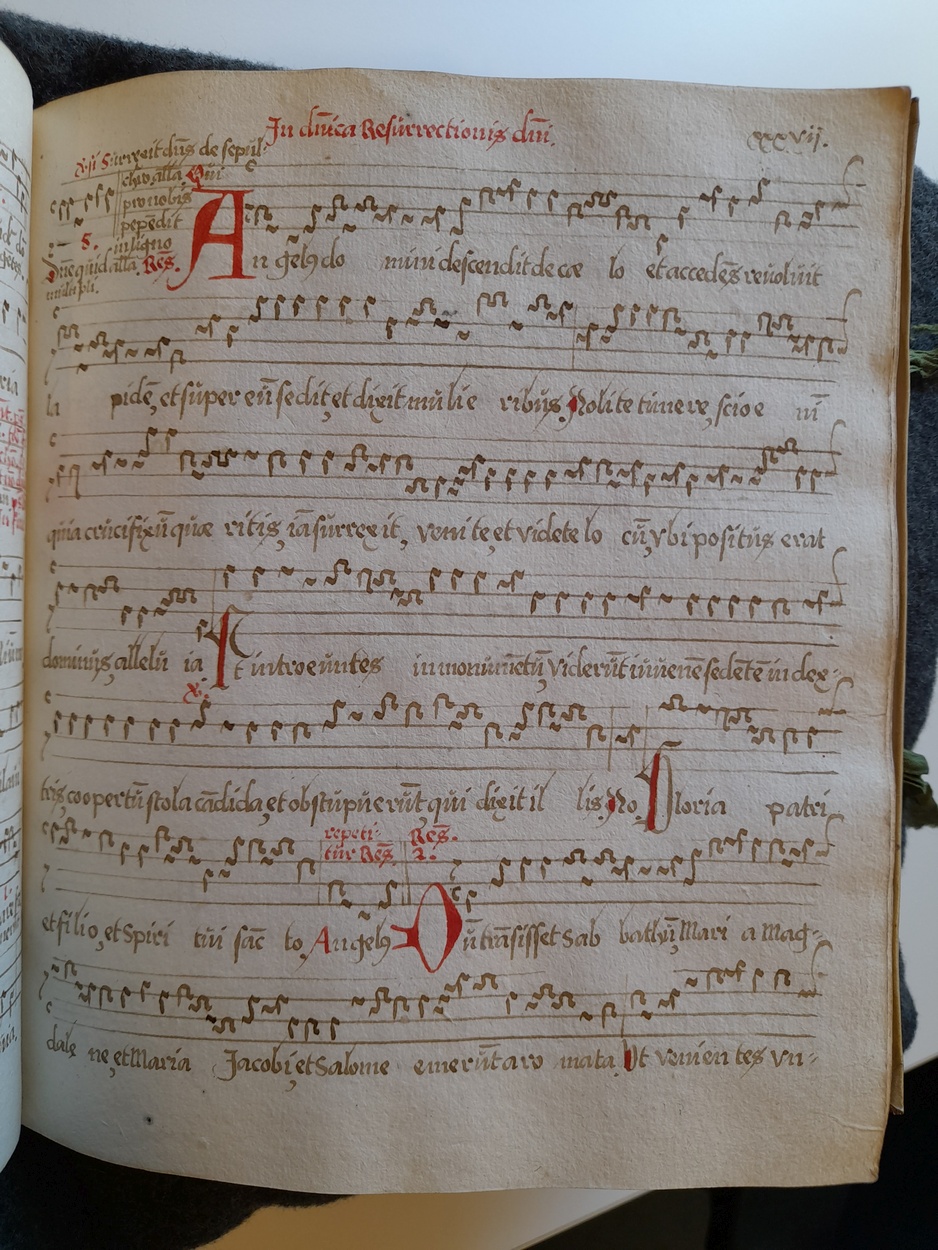 In dīnīca Resurrectionis dnī.
xxxvij.
Surrexit dn̄s de sepul
chro, alla. Qui
pro nobis
pepedit
S. in ligno
alla. Res.
Angelus domini descendit de cæ lo et accedēs revoluit
la pidē, et super eū sedit, et dixit mulie ribus. Nolite timere, scio e nī
quia crucifixū quæ ritis, iā surrexit, venite et videte lo cū, vbi positus erat
dominus, allelu ia Et introeuntes in monumētū, viderūt iuvenē sedētē in dex-
℣.
tris coopertū stola cādida, et obstupuerūt, qui dixit il lis. No. Gloria patri
repeti- Res.
tur Res. 2.
et filio, et Spiri tui sāc to. Angelus Dū trāsisset Sab bathū, Mari a Mag-
dale ne, et Maria Jacobi, et Salome emerūt aro mata. Ut venien tes vn-